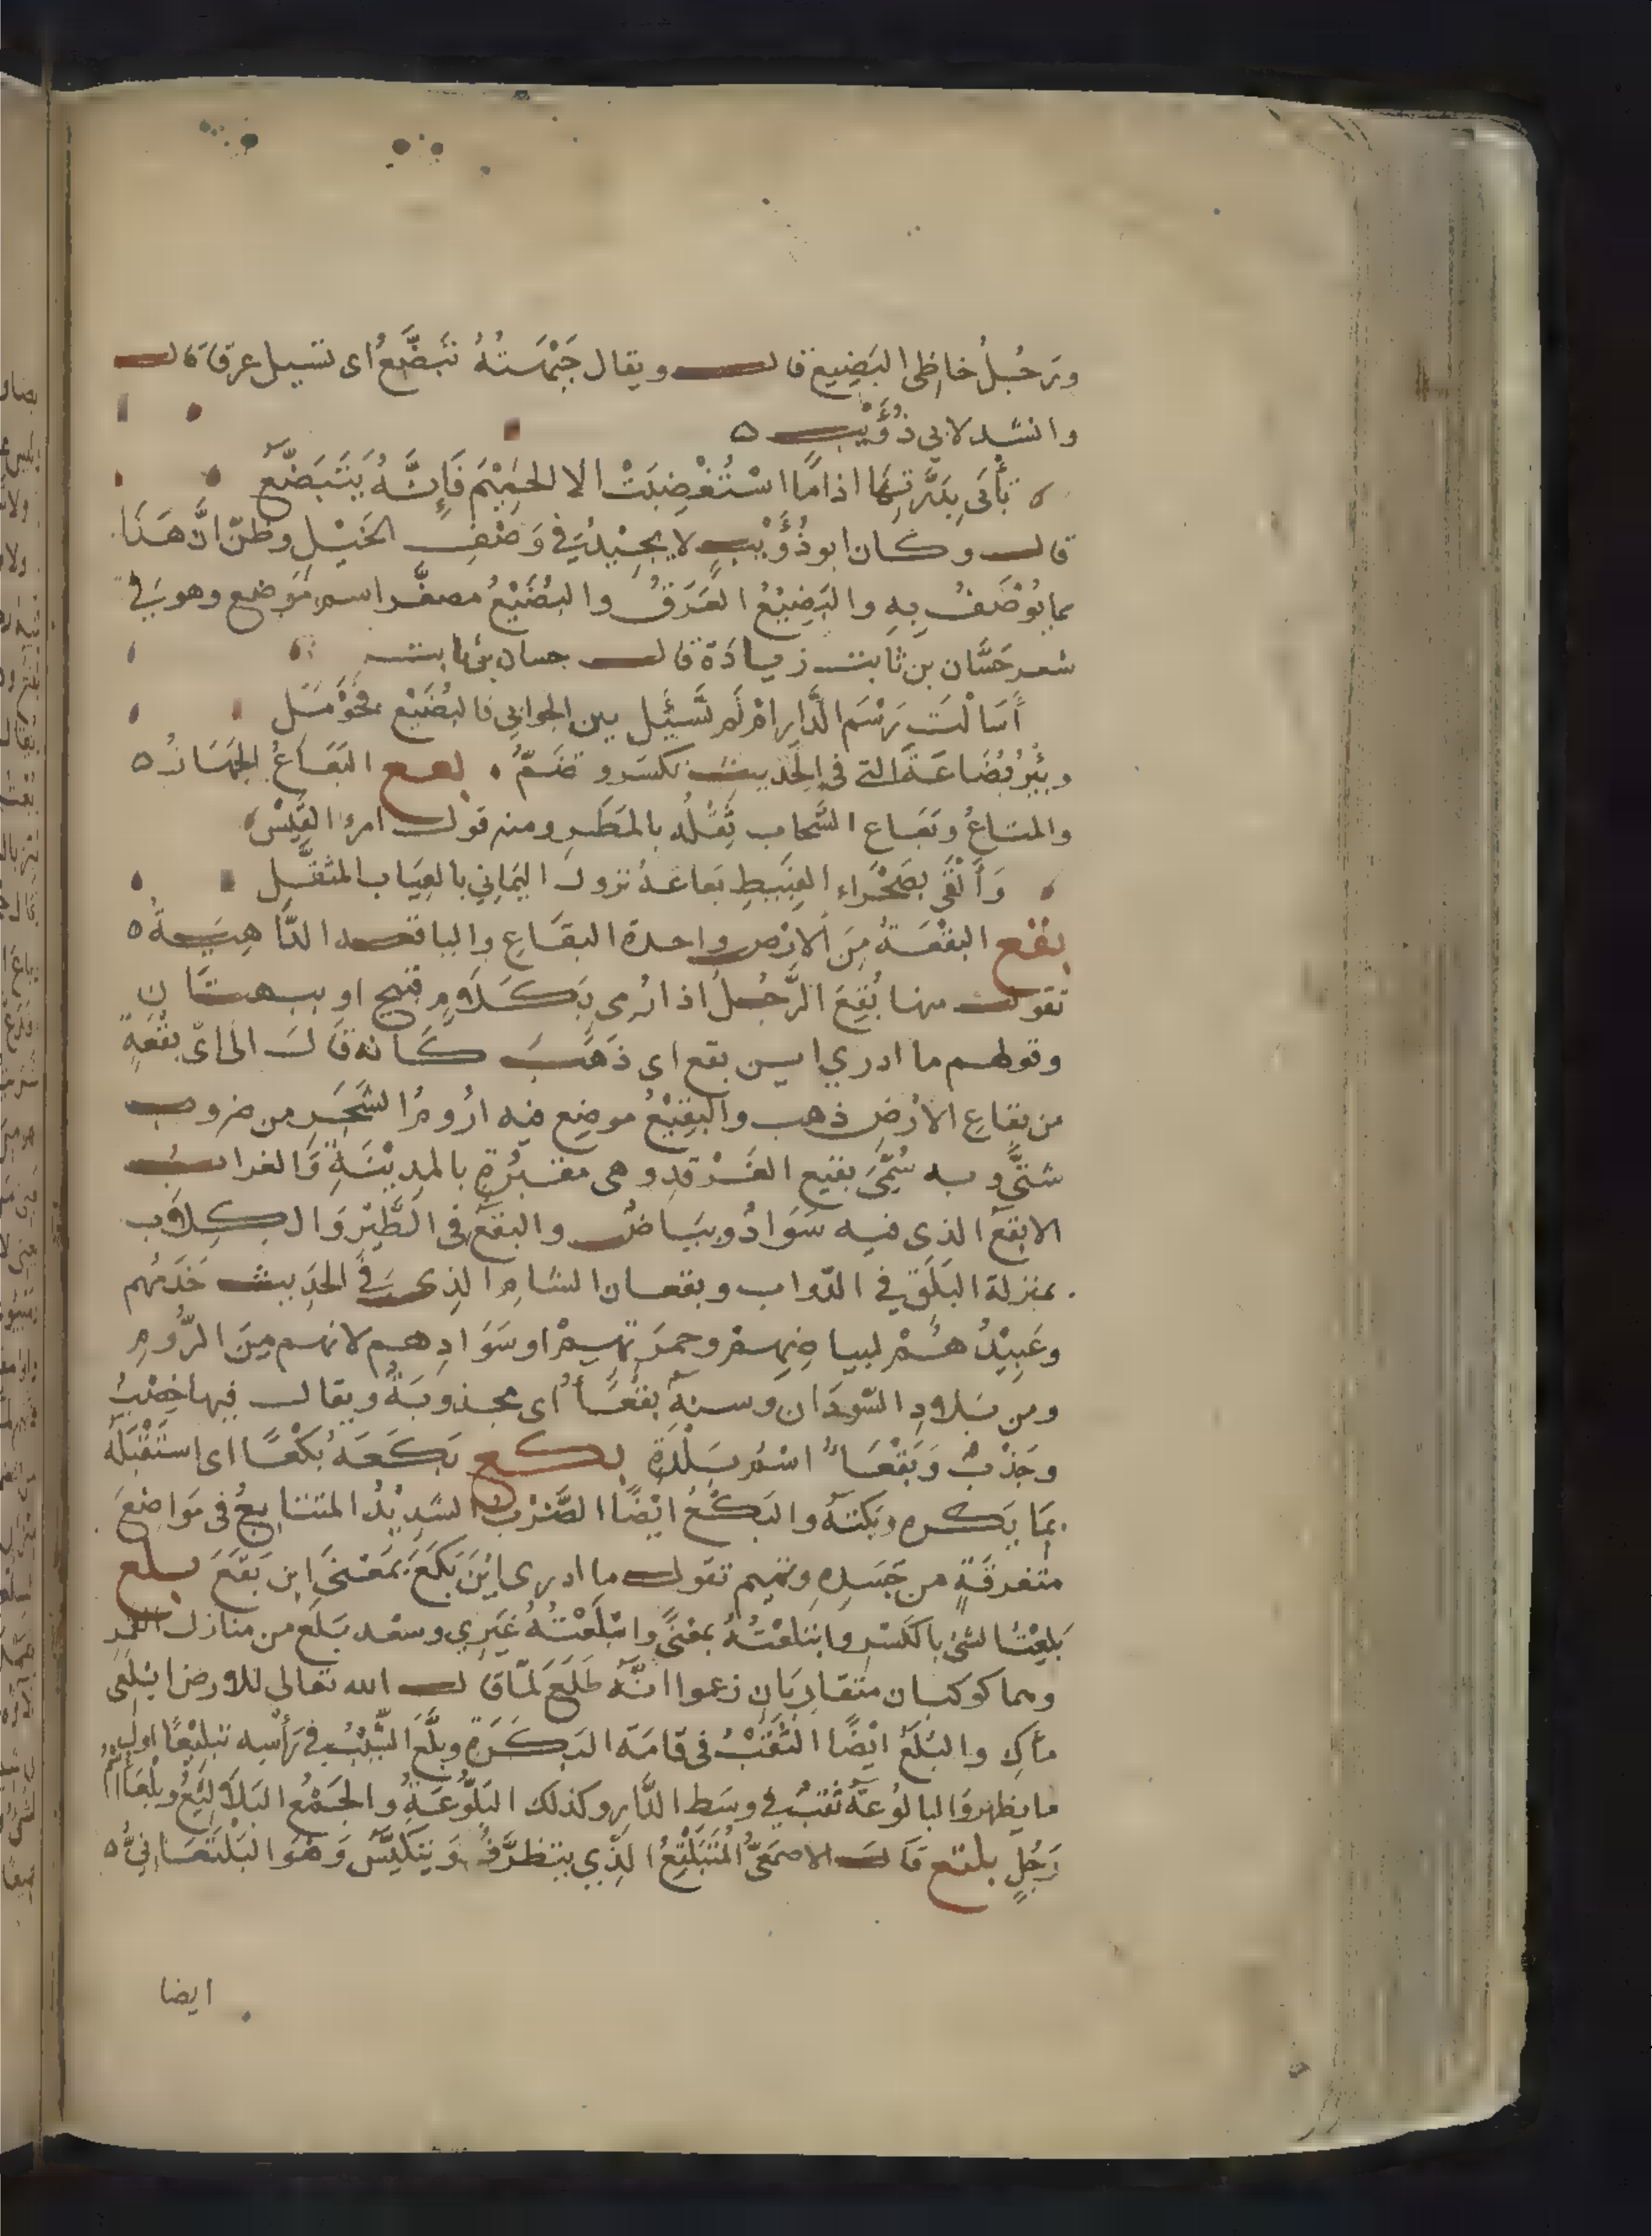 ورجُلٌ خاظِى البَضِيع قال ويقال جَبْهَتُهُ تَبَضَّعُ اى تسيل عرقا قال
وانشد لابي ذُؤَيْب ٥
تَأْبَى بِدَرَّتِهَا اذا مَا اسْتُغْضِبَتْ الا الحَمِيْمَ فَإِنَّهُ يَتَبَضَّعُ
قال وكان ابو ذُؤَيْبٍ لا يجِيْدُ فِي وَصْفِ الخَيْلِ وظنّ انَّ هَذَا
مما يُوْصَفُ بِهِ والبَضِيْعُ العَرَقُ والبُضَيْعُ مصغَّر اسم مَوْضِع وهو فِي
شعر حَسَّان بن ثابت زيادَة قال حسان بن ثابت
أَسَاَلْتَ رَسْمَ الدَّارِ امْ لَم تَسْئَلِ بين الجوابي فالبُضَيْع فحَوْمَلِ
وبِئْرُ بُضَاعَةَ التى فى الحَديث تكسَر وتضَمُّ . بعع البَعَاعُ الجَهَازُ ٥
والمتاعُ وبَعَاع السَّحاب ثِقْلُه بالمَطَرِ ومنه قول امرئ القَيْس
وَأَلْقَى بصَحْرَاءِ الغَبِيطِ بَعاعَهُ نزولَ اليَمانِي بالعِيَابِ المثقَّلِ
بقع البقْعَةُ مِنَ الارْضِ واحدة البقَاعِ والباقعه الدَّاهِيَةُ ٥
تقول منها بُقِعَ الرَّجُلُ اذا رُمِى بِكَلَامٍ قبيح او ببهتَانٍ
وقولهم ما ادري اين بقع اى ذَهَبَ كَانه قَالَ الى اىِّ بقْعَةٍ
من بقاعِ الارْضِ ذهب والبَقِيْعُ موضِع فيه ارُومُ الشَجَرِ من ضروب
شتَّى وبه سُمِّىَ بقيع الغَرْقدِ وهى مقبُرَة بالمدِيْنَةِ وَالغرابُ
الابْقَعُ الذى فيه سَوَادٌ وبيَاضٌ والبقَعُ فى الطَّيْرِ وَالكِلَاب
بمنزلة البَلَقِ في الدّواب وبقعان الشامِ الذى فِي الحَديث خَدَمُهم
وعَبِيْدُهُمْ لبياضِهِمْ وحمرَتِهِمْ او سَوَادِهم لانهم مِنَ الرُّومِ
ومن بَلادِ السّودَان وسنةٌ بقْعَاءُ اى مجذوبَةٌ ويقال فيها خِصْبٌ
وجَذْبٌ وَبَقْعَاءُ اسْمُ بَلْدَةٍ بكع بَكَعَهُ بَكْعًا اى اسْتَقْبَلَهُ
بمَا يَكره وبكتهُ والبَكْعُ ايْضًا الضَّرْبُ الشدِيْدُ المتتابِعُ فى مَوَاضِعَ
متفرقَةٍ من جَسَدِهِ وتميم تقول ما ادرى ايْنَ بَكَعَ بمَعْنَى اين بَقَعَ بلع
بَلِعْتُ الشئَ بالكَسْرِ وابتلعْتُهُ بمعْنًى وابْلَعْتُهُ غَيْرِي وسعْد بَلَعَ من منازل القمَرِ
وهما كوكبان متقارِبَانِ زعموا انَّهُ طَلَعَ لَمّا قال الله تعالى للارض ابْلَعِى
مأكِ والبُلَعُ ايْضًا الثقْبُ فى قامَة البَكَرَةِ وبلَّعَ الشَّيْبُ فِي رَأْسِهِ تبلِيْعًا اولُ
ما يظهر وَالبالوُعَةُ ثقْبٌ في وسَطِ الدَّارِ وكذلك البَلُّوعَةُ والجَمْعُ البَلَالِيْعُ وبلْعَاءُ اسْمُ
رَجُلٍ بلتع قَالَ الاصْمَعِىُّ المُتَبَلْتِعُ الذِّي يتظرَّفُ وَيتكيَّسُ وَهُوَ البَلْتَعَانِيُّ ٥
ايضا